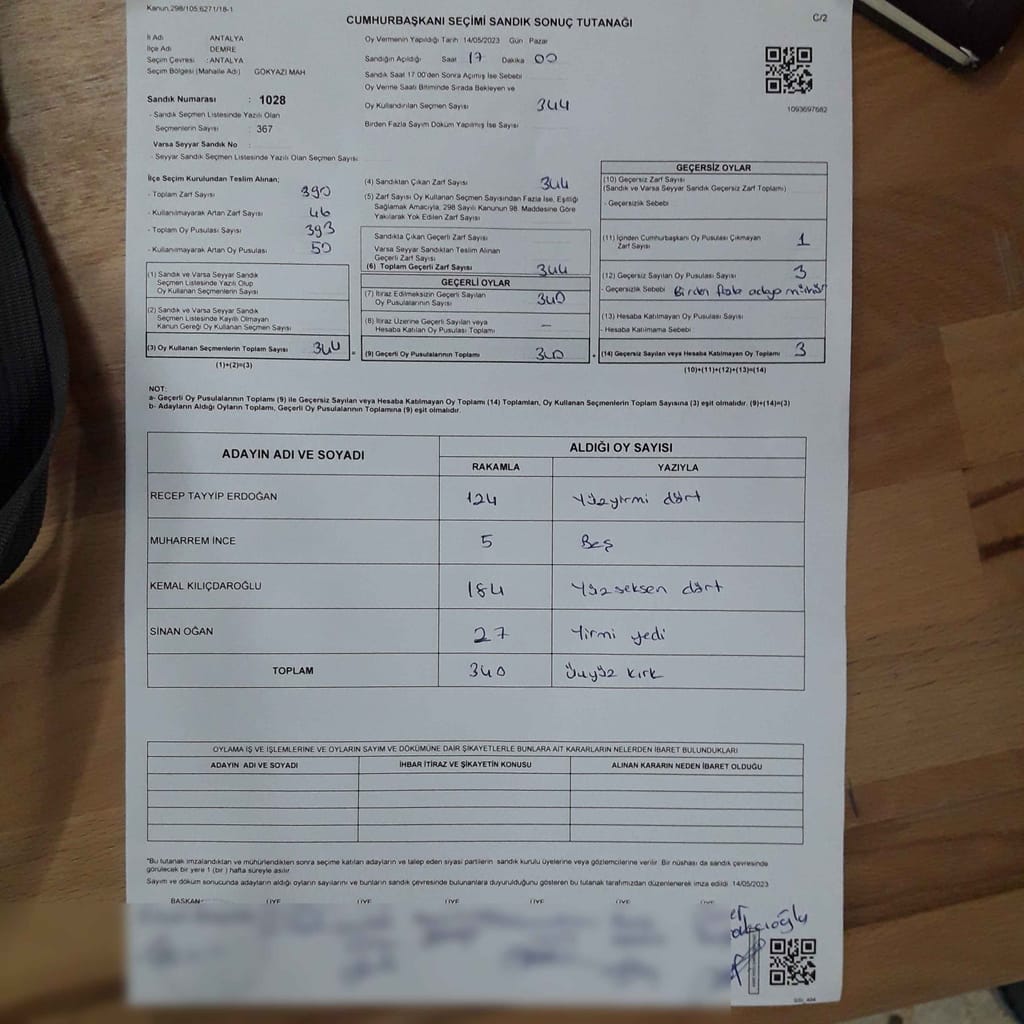 Kanun.298/105.6271/18-1
CUMHURBAŞKANI SEÇİMİ SANDIK SONUÇ TUTANAĞI
C/2
İl Adı ANTALYA
İlçe Adı DEMRE
Seçim Çevresi : ANTALYA
Seçim Bölgesi (Mahalle Adı) GÖKYAZI MAH
Oy Vermenin Yapıldığı Tarih 14/05/2023 Gün Pazar
Sandığın Açıldığı Saat 17 Dakika 00
Sandık Saat 17 00'den Sonra Açımış İse Sebebi
Oy Verme Saati Bitiminde Sırada Bekleyen ve
Oy Kullandırılan Seçmen Sayısı 344
Birden Fazla Sayım Döküm Yapılmış İse Sayısı
1093697682
Sandık Numarası : 1028
- Sandık Seçmen Listesinde Yazılı Olan
Seçmenlerin Sayısı : 367
Varsa Seyyar Sandık No
- Seyyar Sandık Seçmen Listesinde Yazılı Olan Seçmen Sayısı
İlçe Seçim Kurulundan Teslim Alınan;
- Toplam Zarf Sayısı 390
- Kullanılmayarak Artan Zarf Sayısı 46
- Toplam Oy Pusulası Sayısı 393
- Kullanılmayarak Artan Oy Pusulası 50
(1) Sandık ve Varsa Seyyar Sandık
Seçmen Listesinde Yazılı Olup
Oy Kullanan Seçmenlerin Sayısı
(2) Sandık ve Varsa Seyyar Sandık
Seçmen Listesinde Kayıtlı Olmayan
Kanun Gereği Oy Kullanan Seçmen Sayısı
(3) Oy Kullanan Seçmenlerin Toplam Sayısı 344
(1)+(2)=(3)
(4) Sandıktan Çıkan Zarf Sayısı 344
(5) Zarf Sayısı Oy Kullanan Seçmen Sayısından Fazla İse, Eşitliği
Sağlamak Amacıyla, 298 Sayılı Kanunun 98. Maddesine Göre
Yakılarak Yok Edilen Zarf Sayısı
Sandıkta Çıkan Geçerli Zarf Sayısı
Varsa Seyyar Sandıktan Teslim Alınan
Geçerli Zarf Sayısı
(6) Toplam Geçerli Zarf Sayısı 344
GEÇERLİ OYLAR
(7) İtiraz Edilmeksizin Geçerli Sayılan
Oy Pusulalarının Sayısı 340
(8) İtiraz Üzerine Geçerli Sayılan veya
Hesaba Katılan Oy Pusulası Toplamı —
(9) Geçerli Oy Pusulalarının Toplamı 340
GEÇERSİZ OYLAR
(10) Geçersiz Zarf Sayısı
(Sandık ve Varsa Seyyar Sandık Geçersiz Zarf Toplamı)
- Geçersizlik Sebebi
(11) İçinden Cumhurbaşkanı Oy Pusulası Çıkmayan
Zarf Sayısı 1
(12) Geçersiz Sayılan Oy Pusulası Sayısı 3
- Geçersizlik Sebebi Birden fazla adaya mühür
(13) Hesaba Katılmayan Oy Pusulası Sayısı
- Hesaba Katılmama Sebebi
(14) Geçersiz Sayılan veya Hesaba Katılmayan Oy Toplamı 3
(10)+(11)+(12)+(13)=(14)
NOT:
a- Geçerli Oy Pusulalarının Toplamı (9) ile Geçersiz Sayılan veya Hesaba Katılmayan Oy Toplamı (14) Toplamları, Oy Kullanan Seçmenlerin Toplam Sayısına (3) eşit olmalıdır. (9)+(14)=(3)
b- Adayların Aldığı Oyların Toplamı, Geçerli Oy Pusulalarının Toplamına (9) eşit olmalıdır.
ADAYIN ADI VE SOYADI ALDIĞI OY SAYISI
RAKAMLA YAZIYLA
RECEP TAYYİP ERDOĞAN 124 Yüzyirmi dört
MUHARREM İNCE 5 Beş
KEMAL KILIÇDAROĞLU 184 Yüzseksen dört
SİNAN OĞAN 27 Yirmi yedi
TOPLAM 340 Üçyüz kırk
OYLAMA İŞ VE İŞLEMLERİNE VE OYLARIN SAYIM VE DÖKÜMÜNE DAİR ŞİKAYETLERLE BUNLARA AİT KARARLARIN NELERDEN İBARET BULUNDUKLARI
ADAYIN ADI VE SOYADI İHBAR İTİRAZ VE ŞİKAYETİN KONUSU ALINAN KARARIN NEDEN İBARET OLDUĞU
"Bu tutanak imzalandıktan ve mühürlendikten sonra seçime katılan adayların ve talep eden siyasi partilerin sandık kurulu üyelerine veya gözlemcilerine verilir. Bir nüshası da sandık çevresinde
görülecek bir yere 1 (bir ) hafta süreyle asılır
Sayım ve döküm sonucunda adayların aldığı oyların sayılarını ve bunların sandık çevresinde bulunanlara duyurulduğunu gösteren bu tutanak tarafımızdan düzenlenerek imza edildi 14/05/2023
BAŞKAN ÜYE ÜYE ÜYE ÜYE ÜYE ÜYE